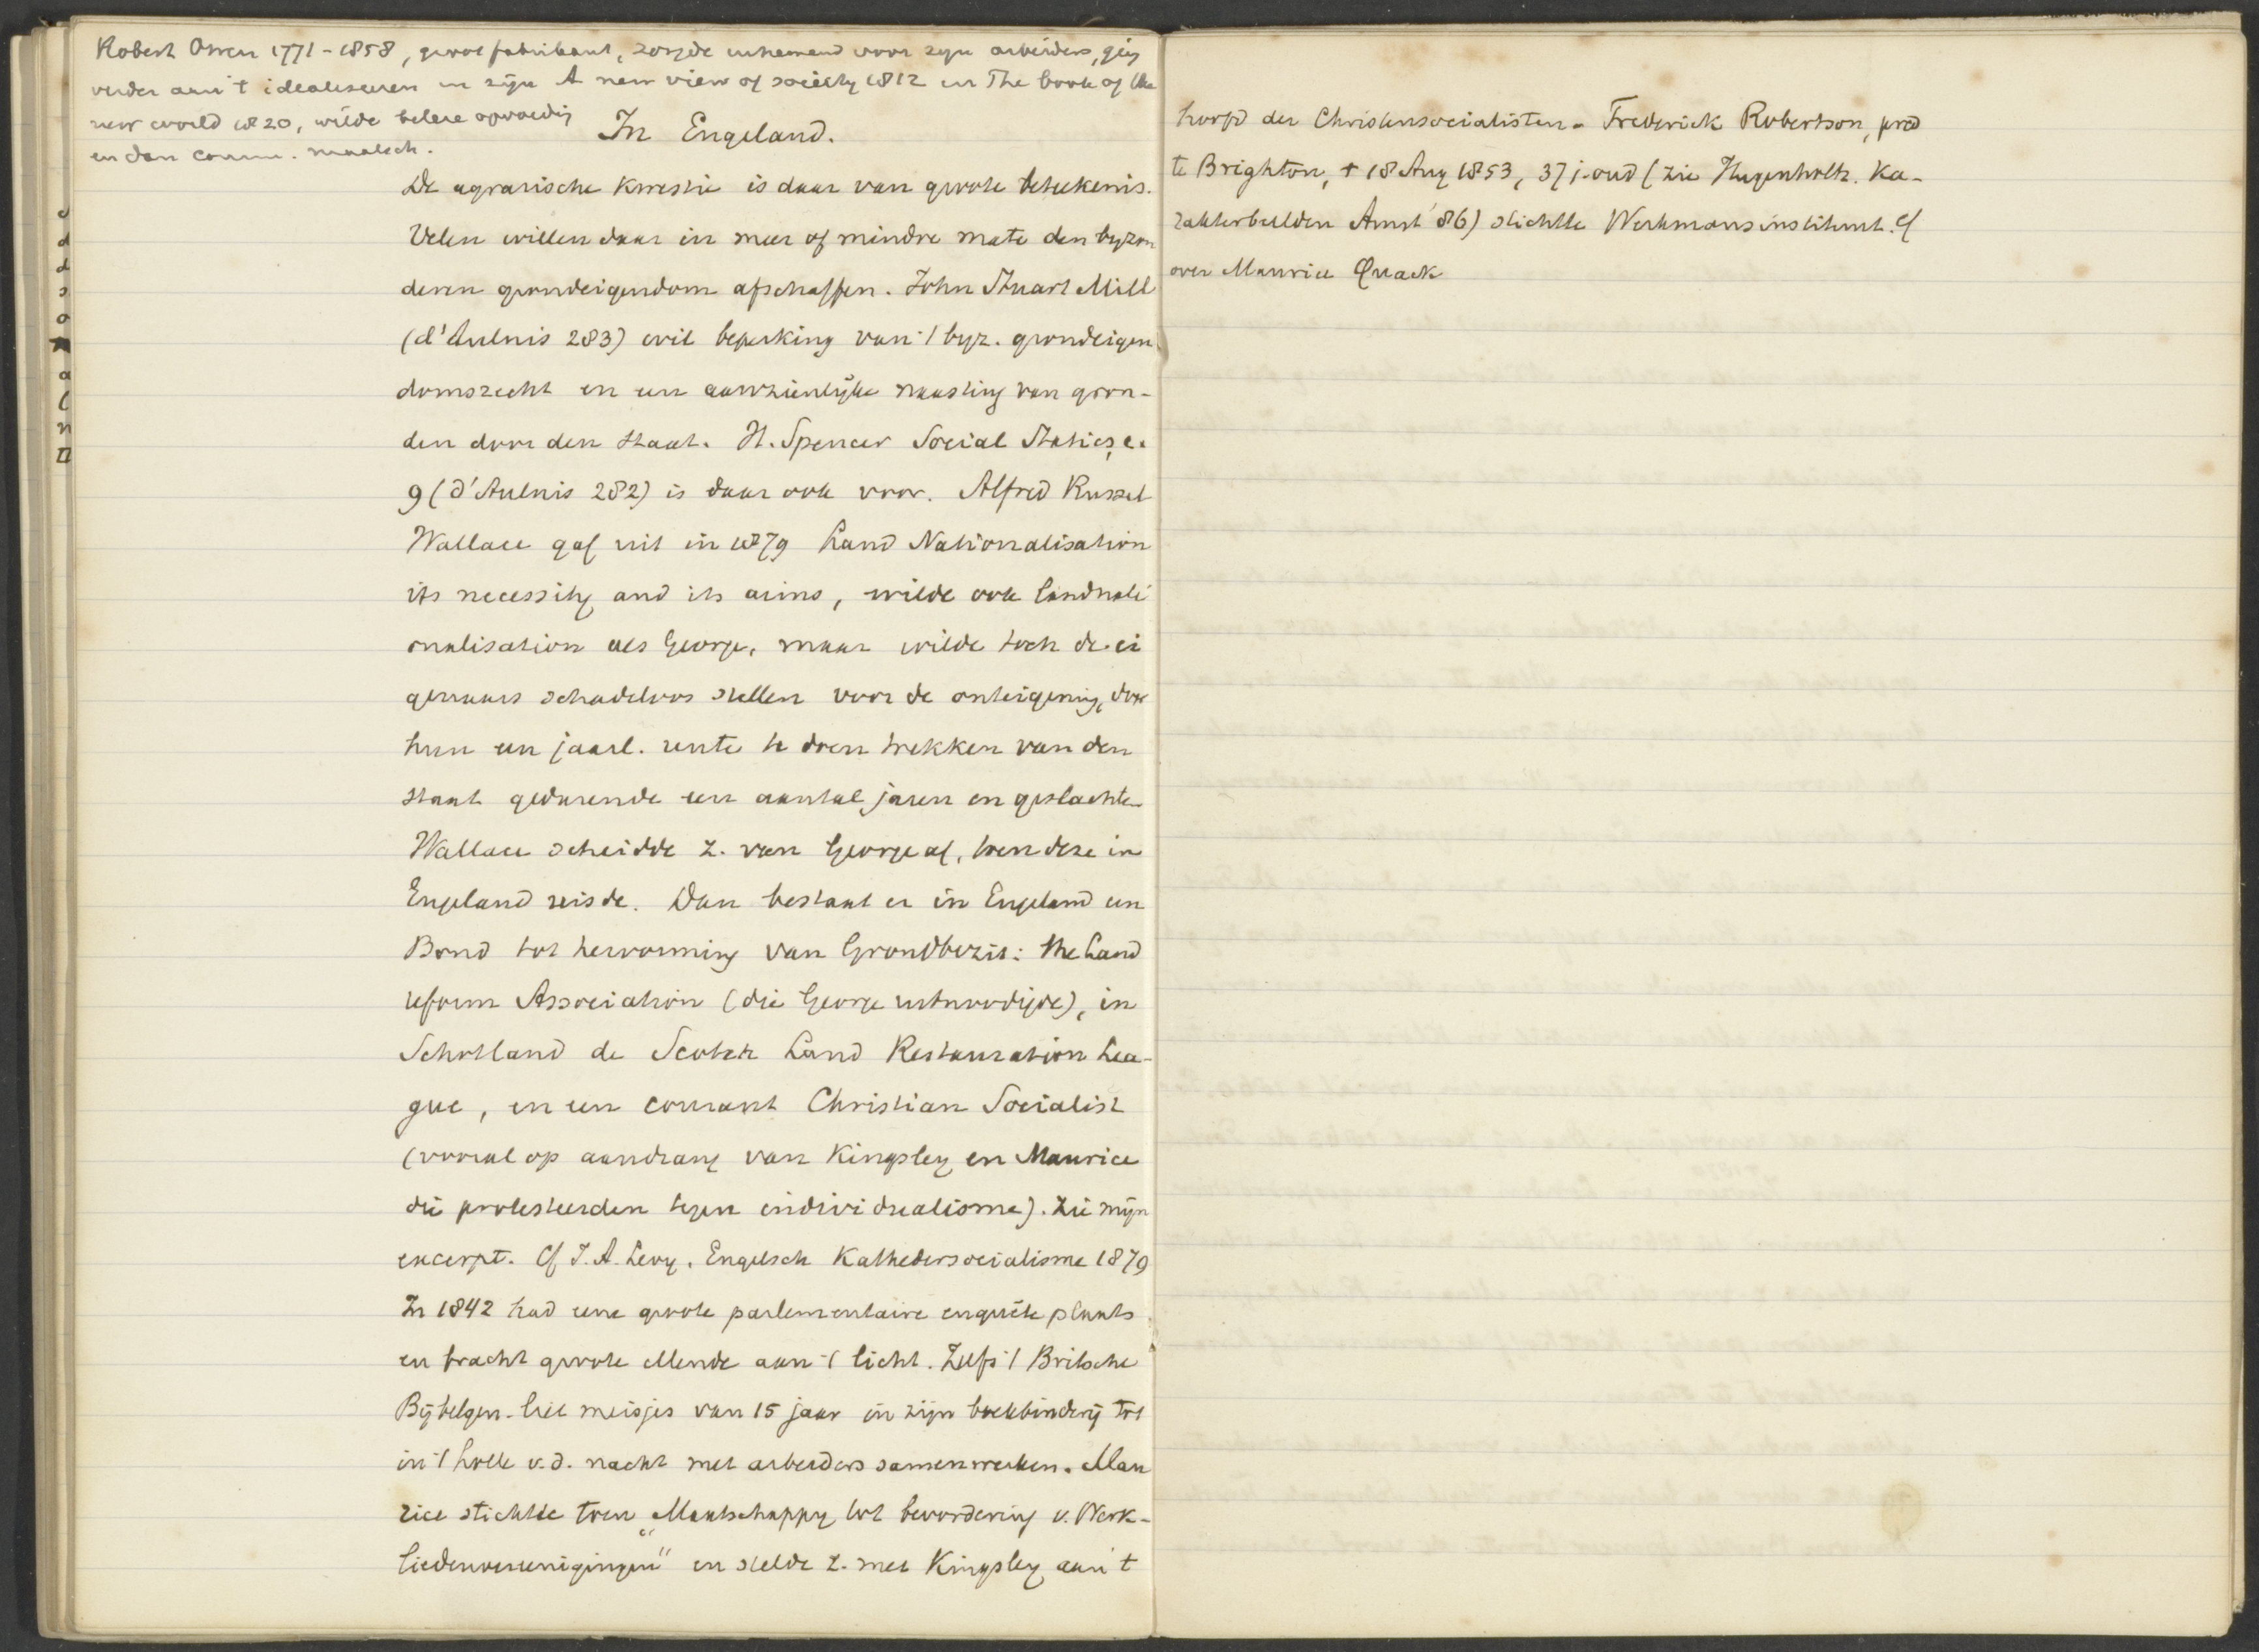 Robert Owen 1771-1858, groot fabrikant, zorgde uitnemend voor zijn arbeiders, ging
verder aan 't idealiseeren in zijn A new view of society 1812 en The book of the
new world 1820, wilde betere opvoeding
en dan comm. maatsch.
In Engeland.
De agrarische kwestie is daar van groote beteekenis.
Velen willen daar in meer of mindre mate den byzon
deren grondeigendom afschaffen. John Stuart Mill
(d'Aulnis 283) wil beperking van 't byz. grondeigen
domsrecht en een aanzienlijke naasting van gron-
den door den staat. H. Spencer Social Statics, c.
9 (d'Aulnis 282) is daar ook voor. Alfred Russel
Wallace gaf uit in 1879 Land Nationalisation
its necessity and its aims, wilde ook landnati
onalisation als George, maar wilde toch de ei
genaars schadeloos stellen voor de onteigening, door
hun een jaarl. rente te doen trekken van den
staat gedurende een aantal jaren en geslachten
Wallace scheidde z. van George af, toen deze in
Engeland reisde. Dan bestaat er in Engeland een
Bond tot hervorming van Grondbezit: the Land
reform Association (die George uitnoodigde), in
Schotland de Scotch Land Restauration Lea-
gue, en een courant Christian Socialist
(vooral op aandrang van Kingsley en Maurice
die protesteerden tegen individualisme). Zie mijn
excerpt. Cf J. A. Levy, Engelsch Kathedersocialisme 1879
In 1842 had eene groote parlementaire enquête plaats
en bracht groote ellende aan 't licht. Zelfs 't Britsche
Bijbelgen. liet meisjes van 15 jaar in zijn boekbinderij tot
in 't holle v.d. nacht met arbeiders samenwerken. Mau
rice stichtte toen „Maatschappy tot bevordering v. Werk-
liedenvereenigingen" en stelde z. met Kingsley aan 't
hoofd der Christensocialisten. Frederick Robertson, pred
te Brighton, † 18 Aug 1853, 37 j. oud (zie Hugenholtz. Ka-
rakterbeelden Amst '86) stichtte Werkmansinstituut. Cf
over Maurice Quack